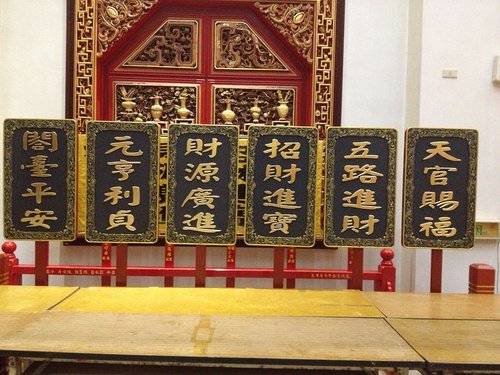 天官賜福
五路進財
招財進寶
財源廣進
元亨利貞
閤臺平安